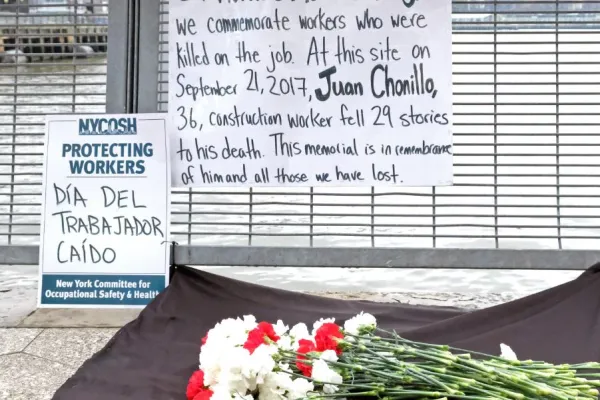 we commemorate workers who were
killed on the job. At this site on
September 21, 2017, Juan Chonillo,
36, construction worker fell 29 stories
to his death. This memorial is in remembrance
of him and all those we have lost.
NYCOSH
PROTECTING
WORKERS
DÍA DEL
TRABAJADOR
CAÍDO
New York Committee for
Occupational Safety & Health